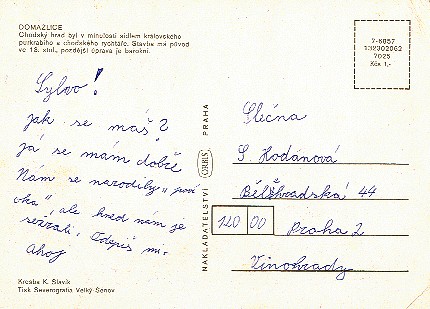 DOMAŽLICE
Chodský hrad byl v minulosti sídlem královského
purkrabího a chodského rychtáře. Stavba má původ
ve 13. stol., pozdější úprava je barokní.
7-6857
132302062
7025
Kčs 1,-
Sylvo!
jak se máš?
já se mám dobře
Nám se narodily
ale hned nám je
sežrali. Odepiš mi.
Ahoj
Kresba K. Slavík
Tisk Severografia Velký Šenov
NAKLADATELSTVÍ ORBIS PRAHA
Slečna
S. Hodánová
Bělehradská 44
120 00 Praha 2
Vinohrady